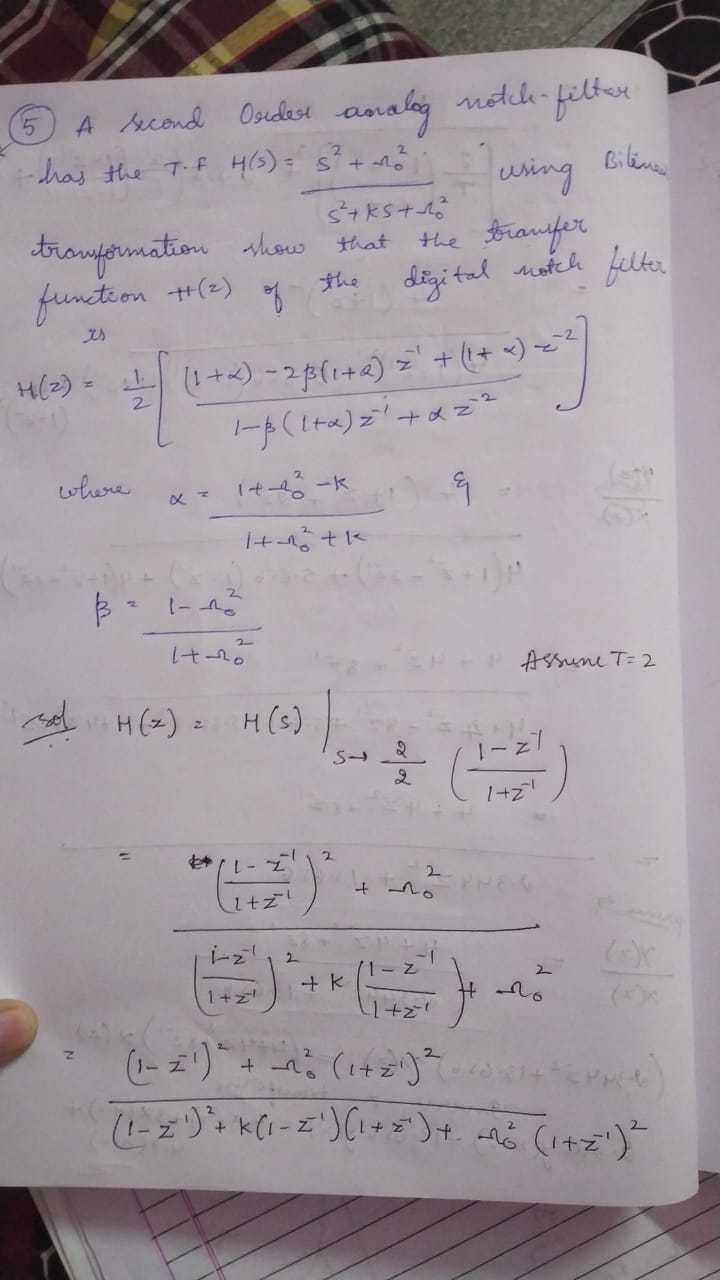 ⑤ A second Order analog notch-filter
has the T.F H(s) = (s² + Ω₀²) / (s² + ks + Ω₀²) using
transformation show that the transfer
function H(z) of the digital notch filter
is
H(z) = 1/2 [ ((1+α) - 2β(1+α) z⁻¹ + (1+α) z⁻²) / (1-β(1+α) z⁻¹ + α z⁻²) ]
where α = (1+Ω₀² - k) / (1+Ω₀² + k) &
β = (1-Ω₀²) / (1+Ω₀²)
Assume T=2
sol H(z) = H(s) | s→ 2/2 ((1-z⁻¹) / (1+z⁻¹))
= (((1-z⁻¹)/(1+z⁻¹))² + Ω₀²) / (((1-z⁻¹)/(1+z⁻¹))² + k((1-z⁻¹)/(1+z⁻¹)) + Ω₀²)
= ((1-z⁻¹)² + Ω₀² (1+z⁻¹)²) / ((1-z⁻¹)² + k(1-z⁻¹)(1+z⁻¹) + Ω₀² (1+z⁻¹)²)